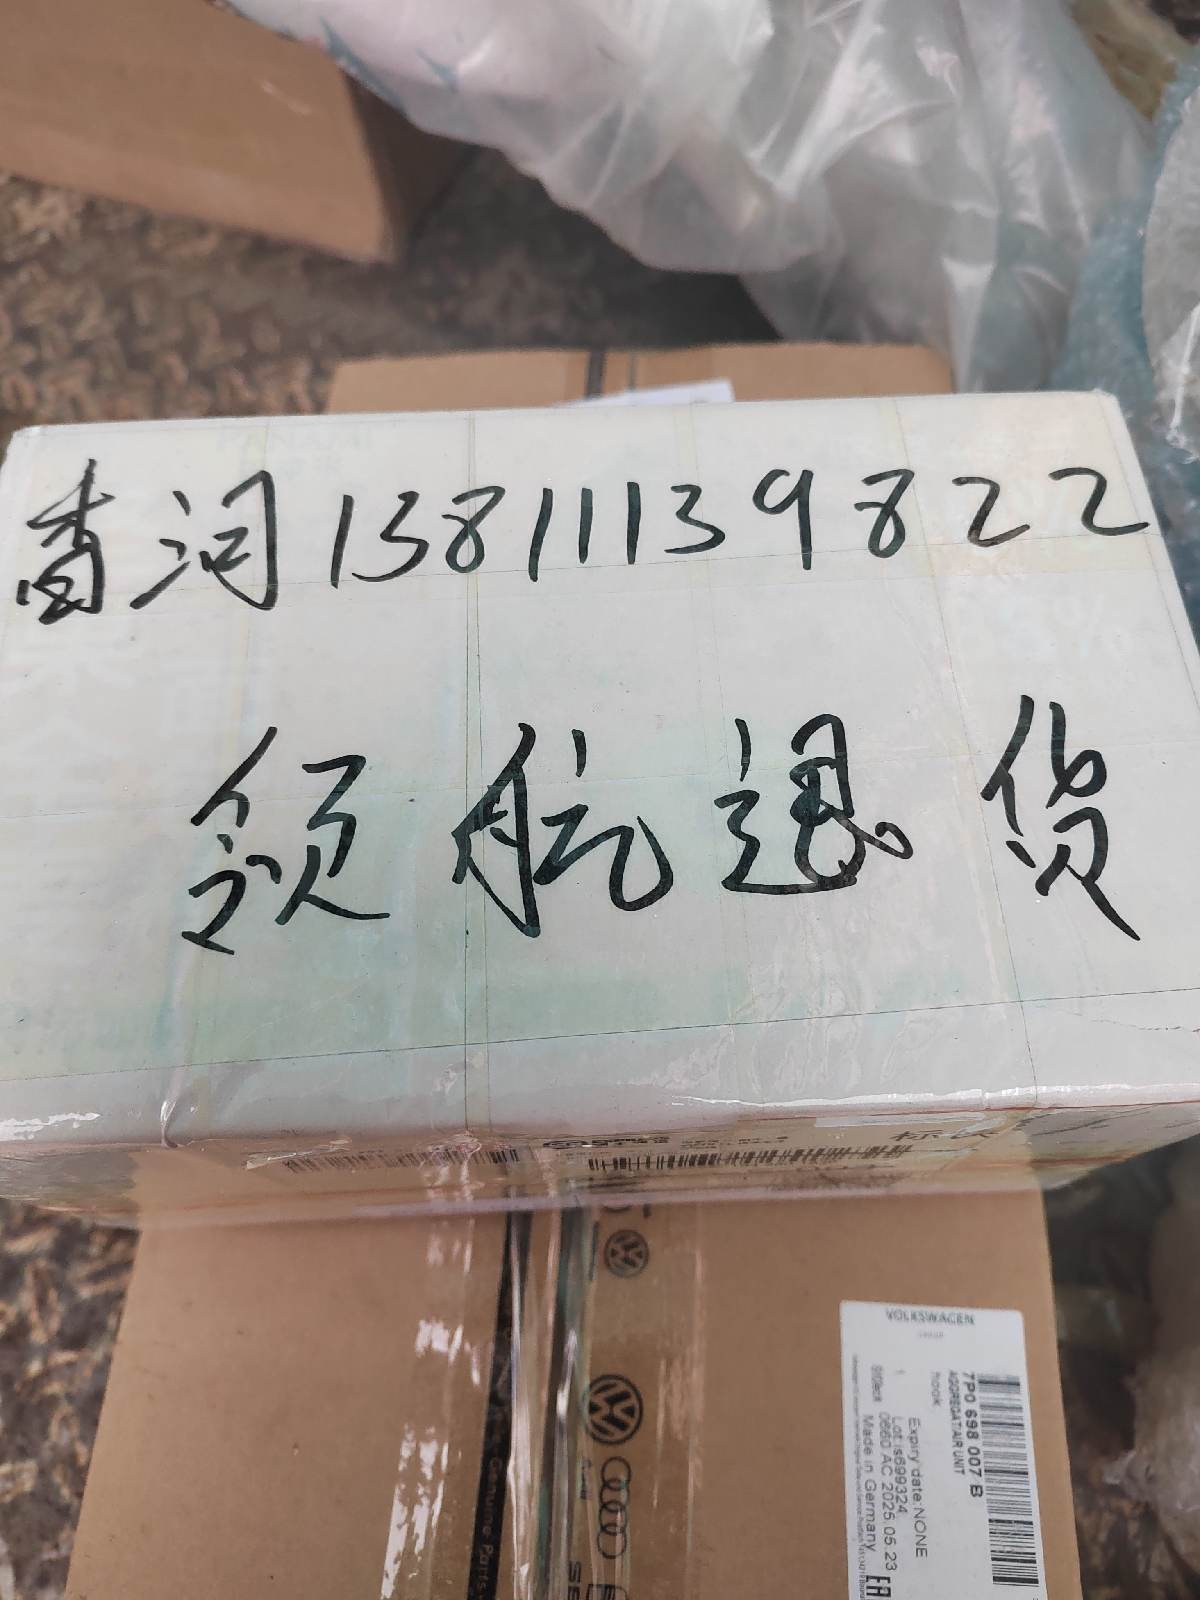 香河 13811139822
领航退货
VOLKSWAGEN
7P0 698 007 B
AGGREGAT/AIR UNIT
hook
Expiry date:NONE
Lot:is699324
1
0660 AC 2025.05.23
Made in Germany
EAC
Genuine Parts